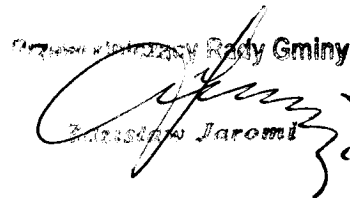 Przewodniczący Rady Gminy
Jaromi